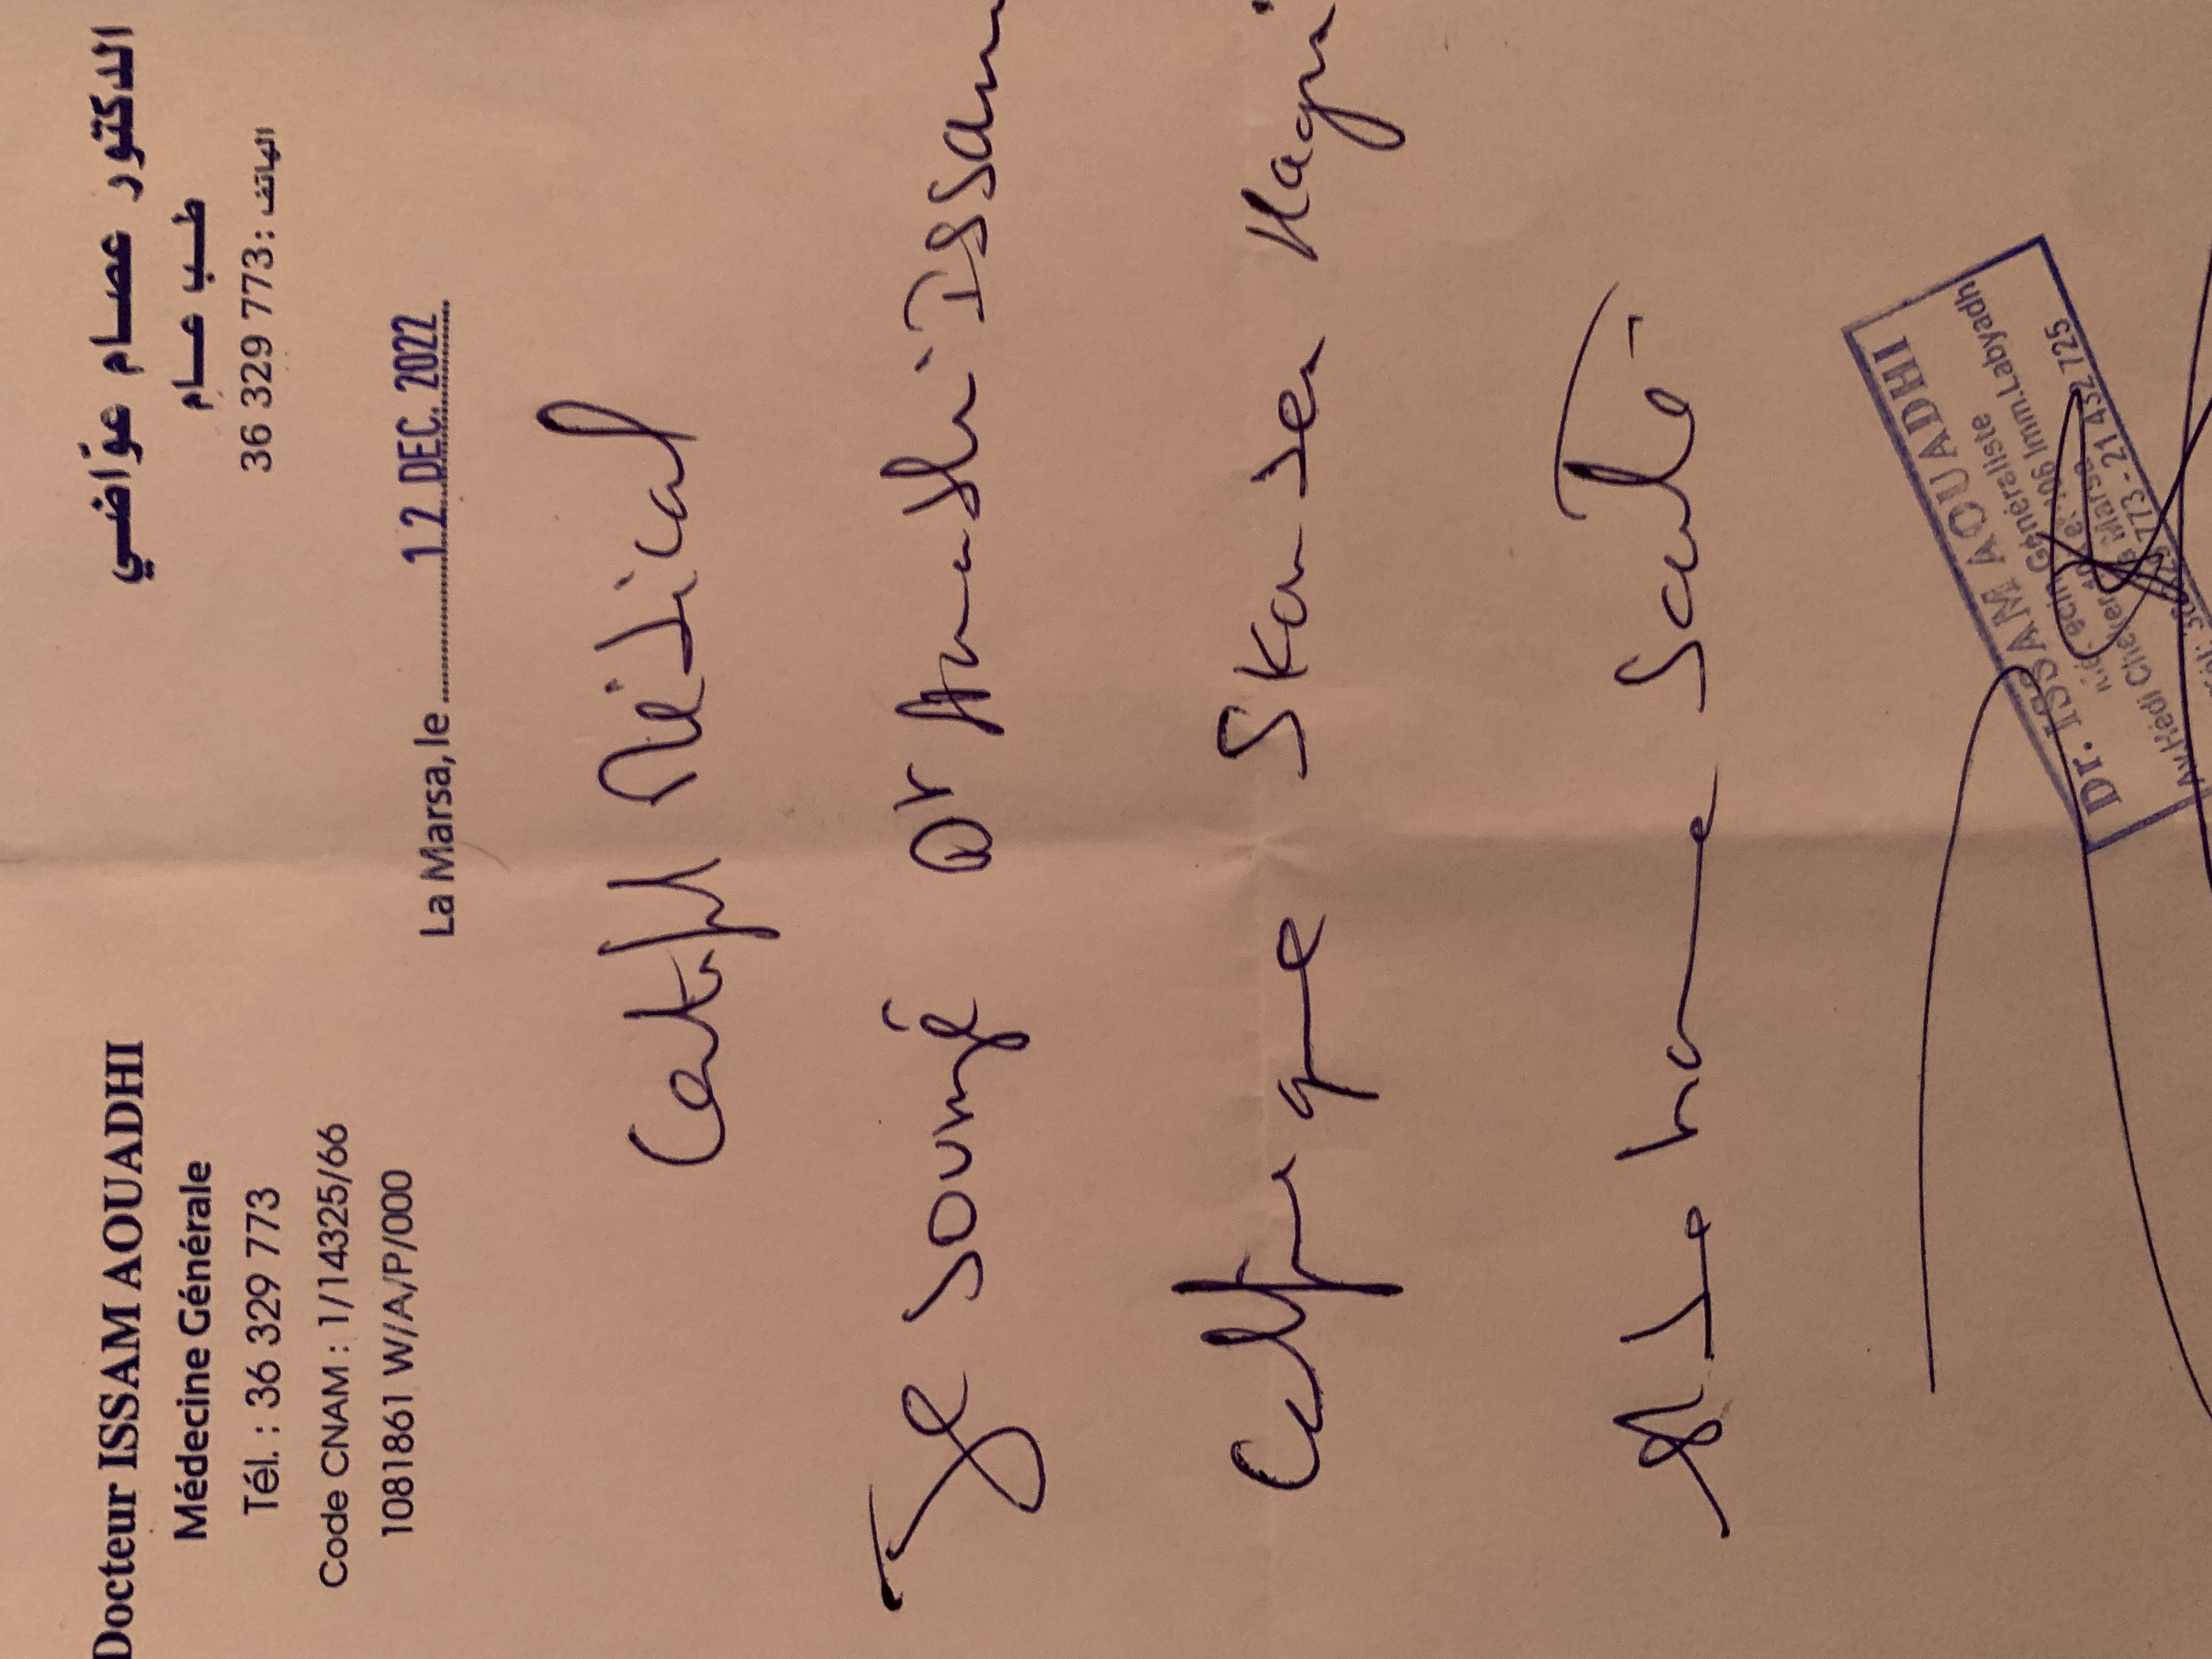 Docteur ISSAM AOUADHI
Médecine Générale
Tél. : 36 329 773
Code CNAM : 1/14325/66
1081861 W/A/P/000
الدكتور عصام عوّاضي
طب عام
الهاتف : 36 329 773
La Marsa, le 12 DEC. 2022
Certificat Médical
Je soussigné Dr Aouadhi Issam
certifie que Skander Hagui
est de bonne santé
Dr. ISSAM AOUADHI
Médecin Généraliste
Av. Hédi Chaker Imm. Labyadh
La Marsa
773 - 21 432 725